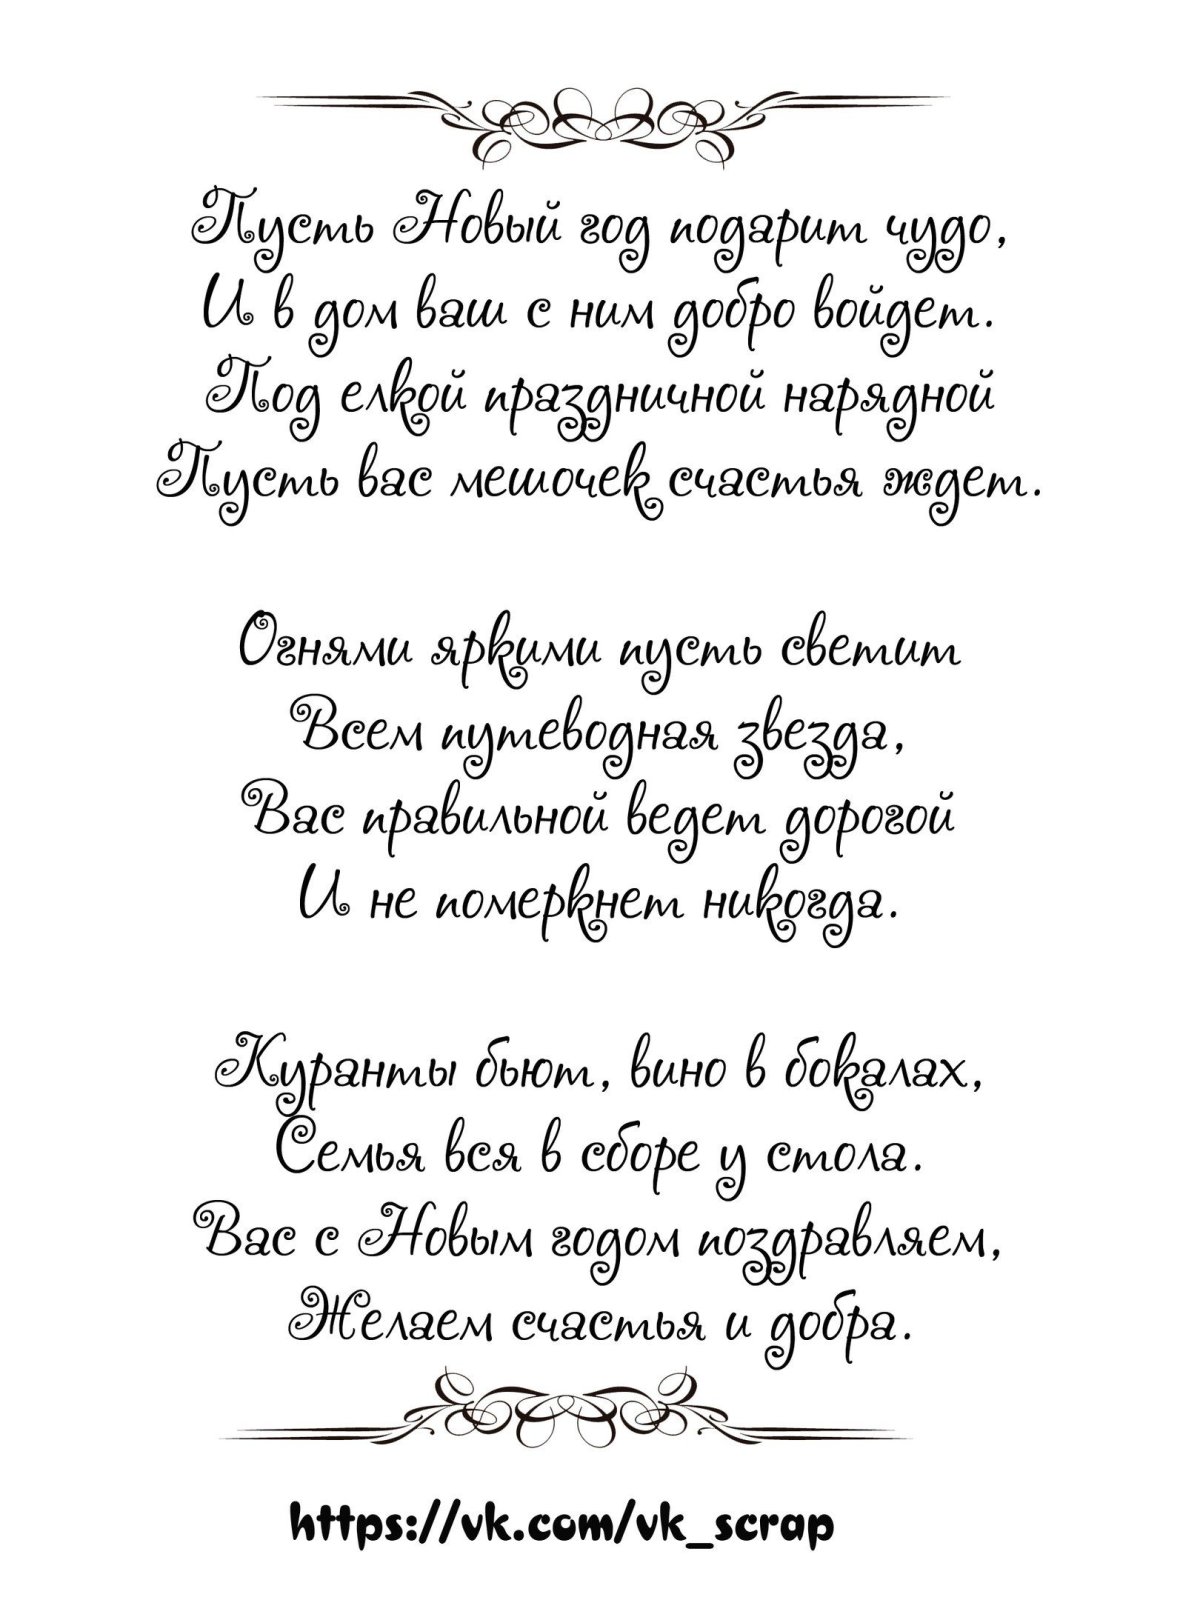 Пусть Новый год подарит чудо,
И в дом ваш с ним добро войдет.
Под елкой праздничной нарядной
Пусть вас мешочек счастья ждет.
Огнями яркими пусть светит
Всем путеводная звезда,
Вас правильной ведет дорогой
И не померкнет никогда.
Куранты бьют, вино в бокалах,
Семья вся в сборе у стола.
Вас с Новым годом поздравляем,
Желаем счастья и добра.
https://vk.com/vk_scrap